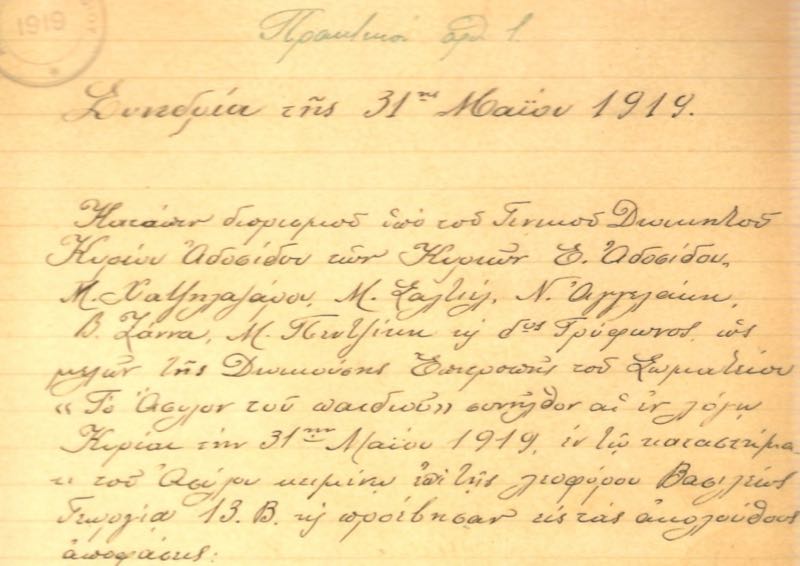 1919
Πρακτικόν ἀρθ 1.
Συνεδρία τῆς 31ης Μαΐου 1919.
Κατόπιν διορισμοῦ ὑπὸ τοῦ Γενικοῦ Διοικητοῦ
Κυρίου Ἀδοσίδου τῶν Κυριῶν Ε. Ἀδοσίδου,
Μ. Χατζηλαζάρου, Μ. Σαλτιέλ, Ν. Ἀγγελάκη,
Β. Ζάννα, Μ. Πεντζίκη κ δος Τρύφωνος, ὡς
μελῶν τῆς Διοικούσης Ἐπιτροπῆς τοῦ Σωματείου
«Τὸ Ἄσυλον τοῦ παιδιοῦ» συνῆλθον αἱ ἐν λόγῳ
Κυρίαι τὴν 31ην Μαΐου 1919, ἐν τῷ καταστήμα-
τι τοῦ Ἀσύλου κειμένῳ ἐπὶ τῆς λεωφόρου Βασιλέως
Γεωργίου 13. Β. κ προέβησαν εἰς τὰς ἀκολούθους
ἀποφάσεις: